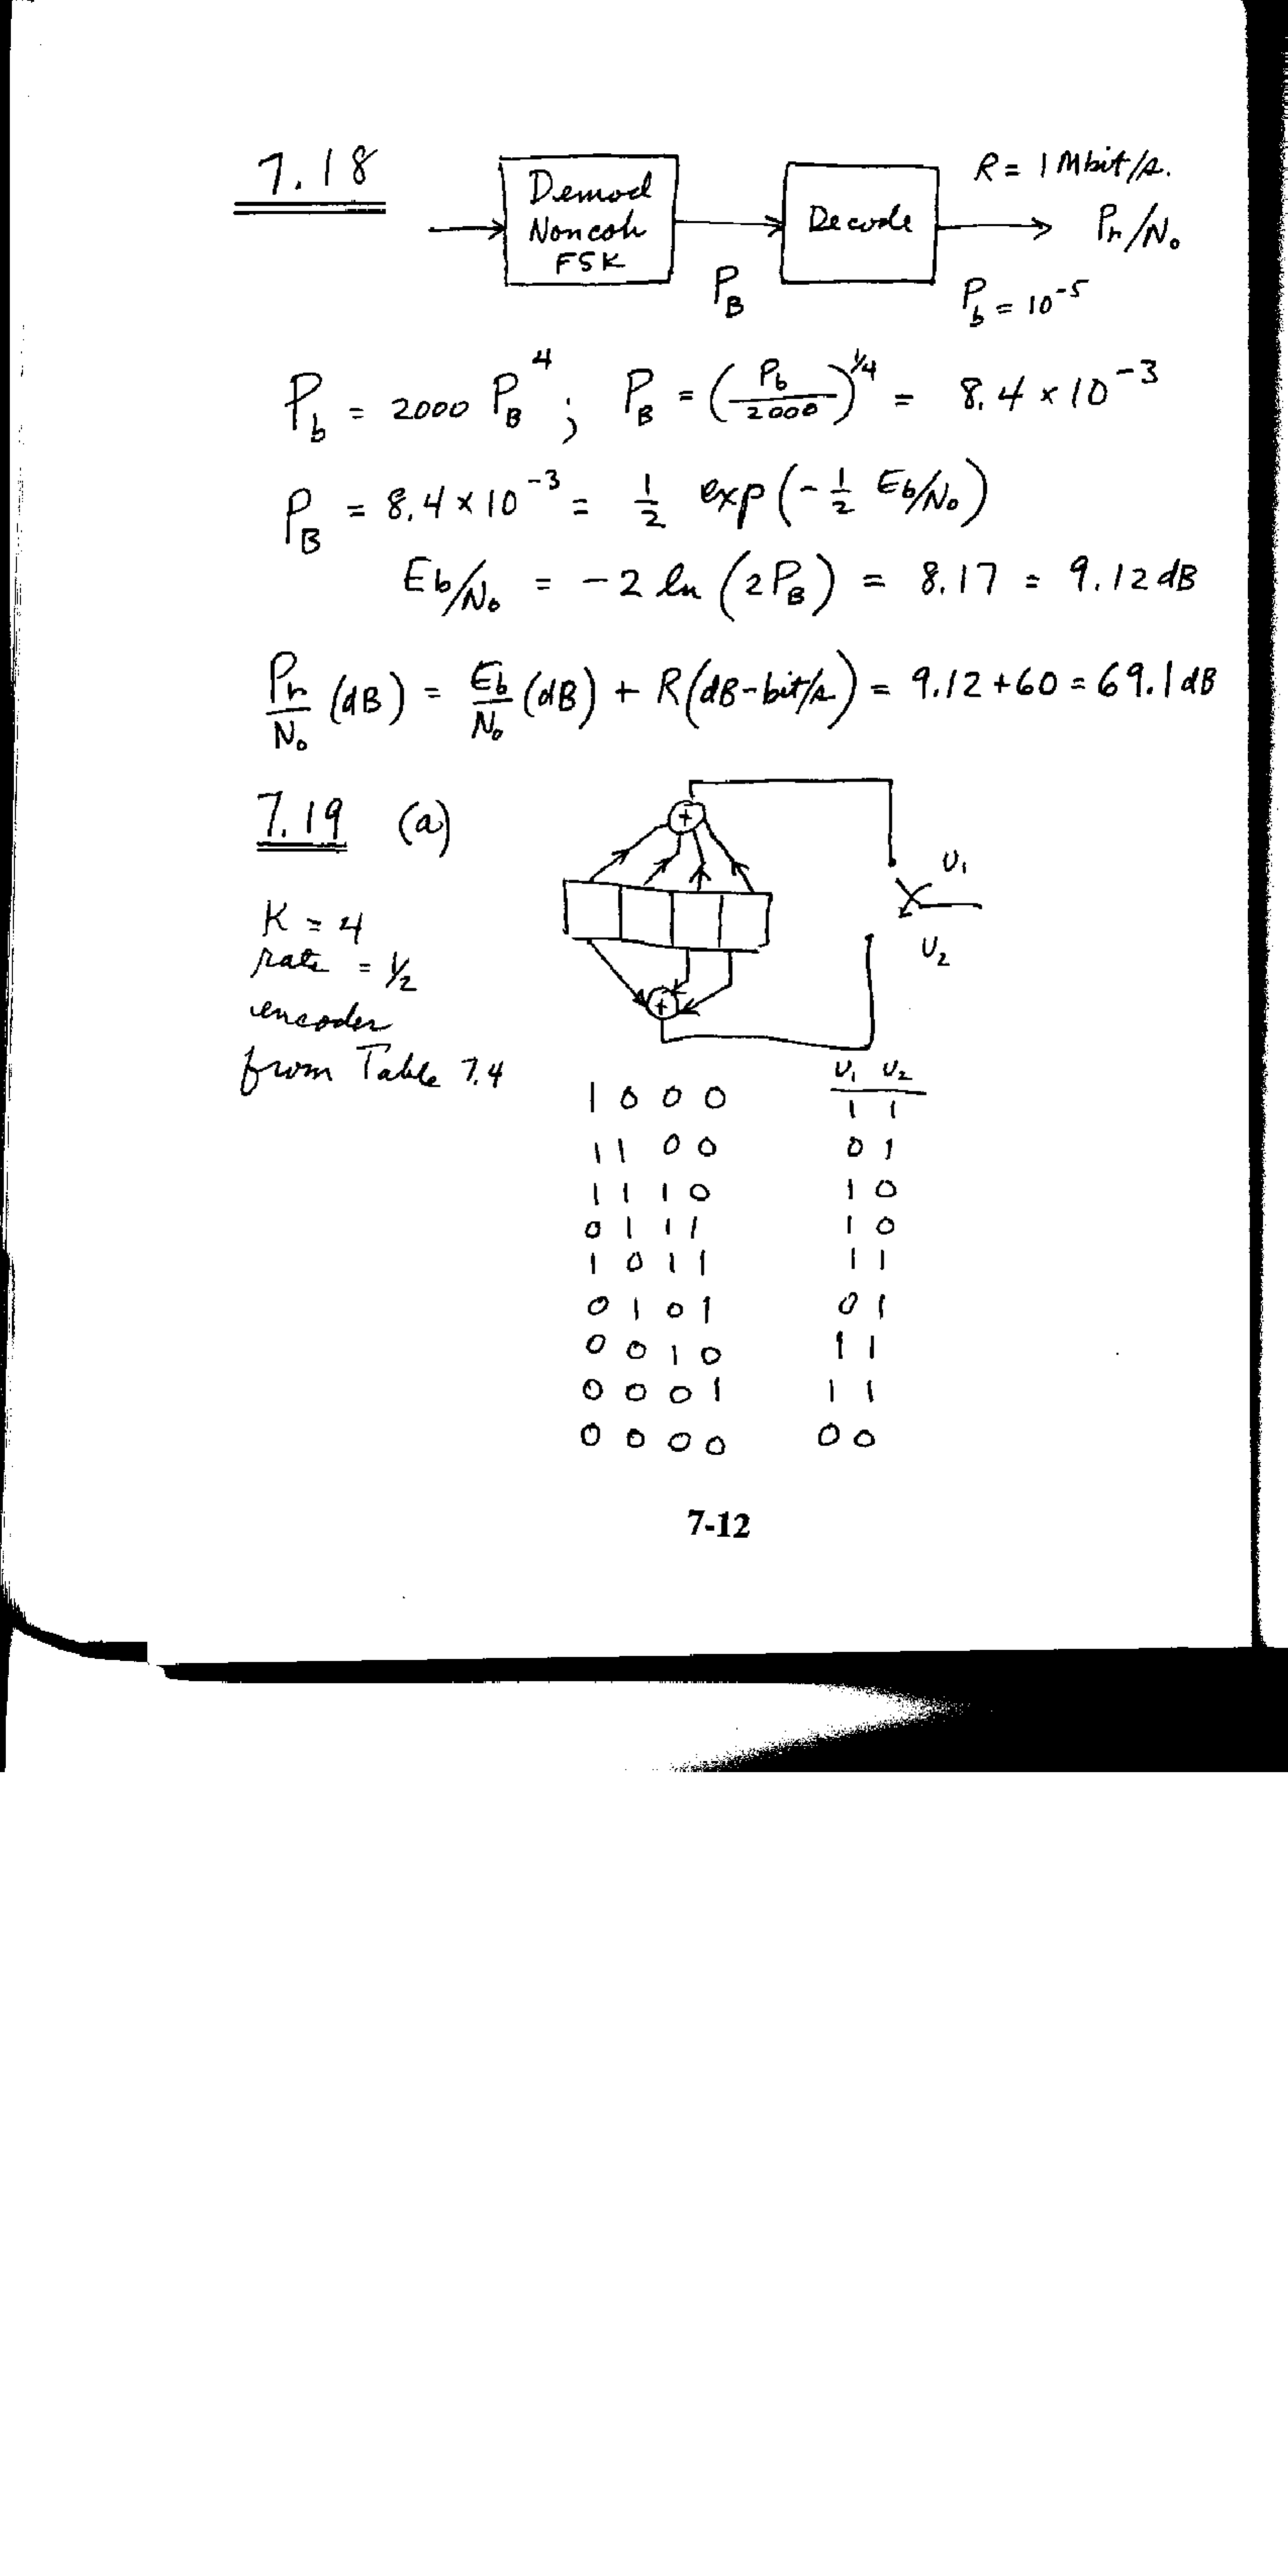 7.18
Demod
Noncoh
FSK
P_B
Decode
R = 1 Mbit/s.
Pr/N₀
P_b = 10⁻⁵
P_b = 2000 P_B⁴ ; P_B = (P_b/2000)^¼ = 8.4 × 10⁻³
P_B = 8.4 × 10⁻³ = ½ exp(-½ Eb/N₀)
Eb/N₀ = -2 ln (2P_B) = 8.17 = 9.12 dB
Pr/N₀ (dB) = Eb/N₀ (dB) + R(dB-bit/s) = 9.12 + 60 = 69.1 dB
7.19 (a)
+
U₁
U₂
+
K = 4
rate = ½
encoder
from Table 7.4
U₁ U₂
1 0 0 0 1 1
1 1 0 0 0 1
1 1 1 0 1 0
0 1 1 1 1 0
1 0 1 1 1 1
0 1 0 1 0 1
0 0 1 0 1 1
0 0 0 1 1 1
0 0 0 0 0 0
7-12